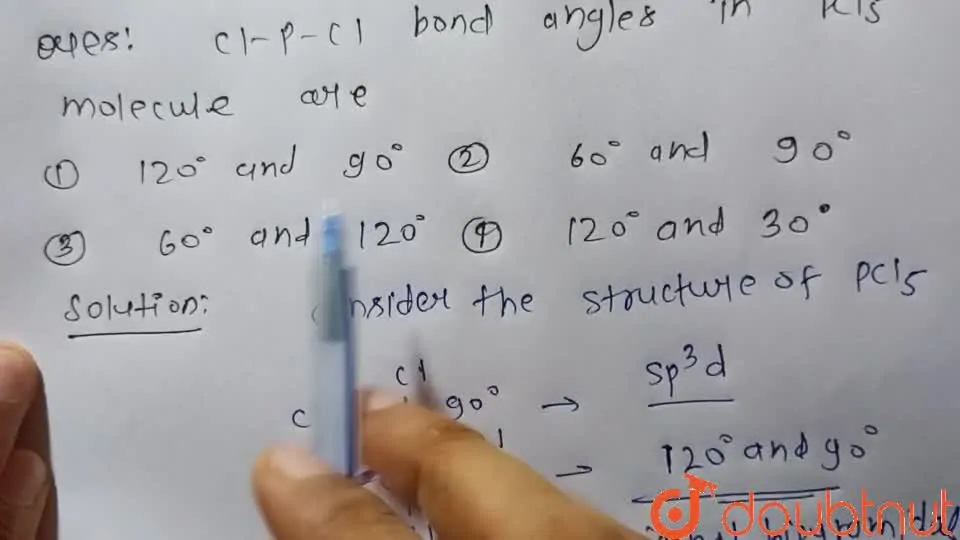 Ques: Cl-P-Cl bond angles in PCl5
molecule are
① 120° and 90° ② 60° and 90°
③ 60° and 120° ④ 120° and 30°
Solution: Consider the structure of PCl5
Cl
90° → sp³d
→ 120° and 90°
doubtnut